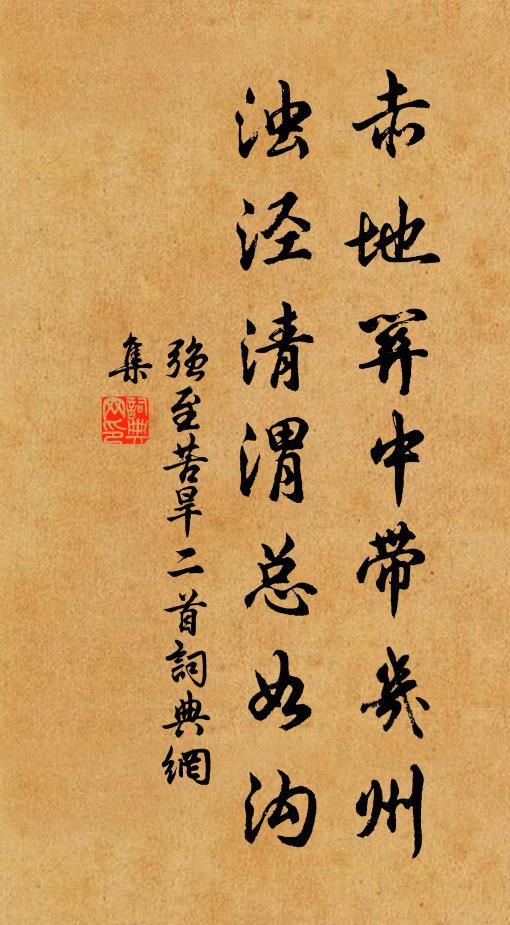 赤地关中带几州
浊泾清渭总如沟
强至苦旱二首詞典網
集
詞典網印